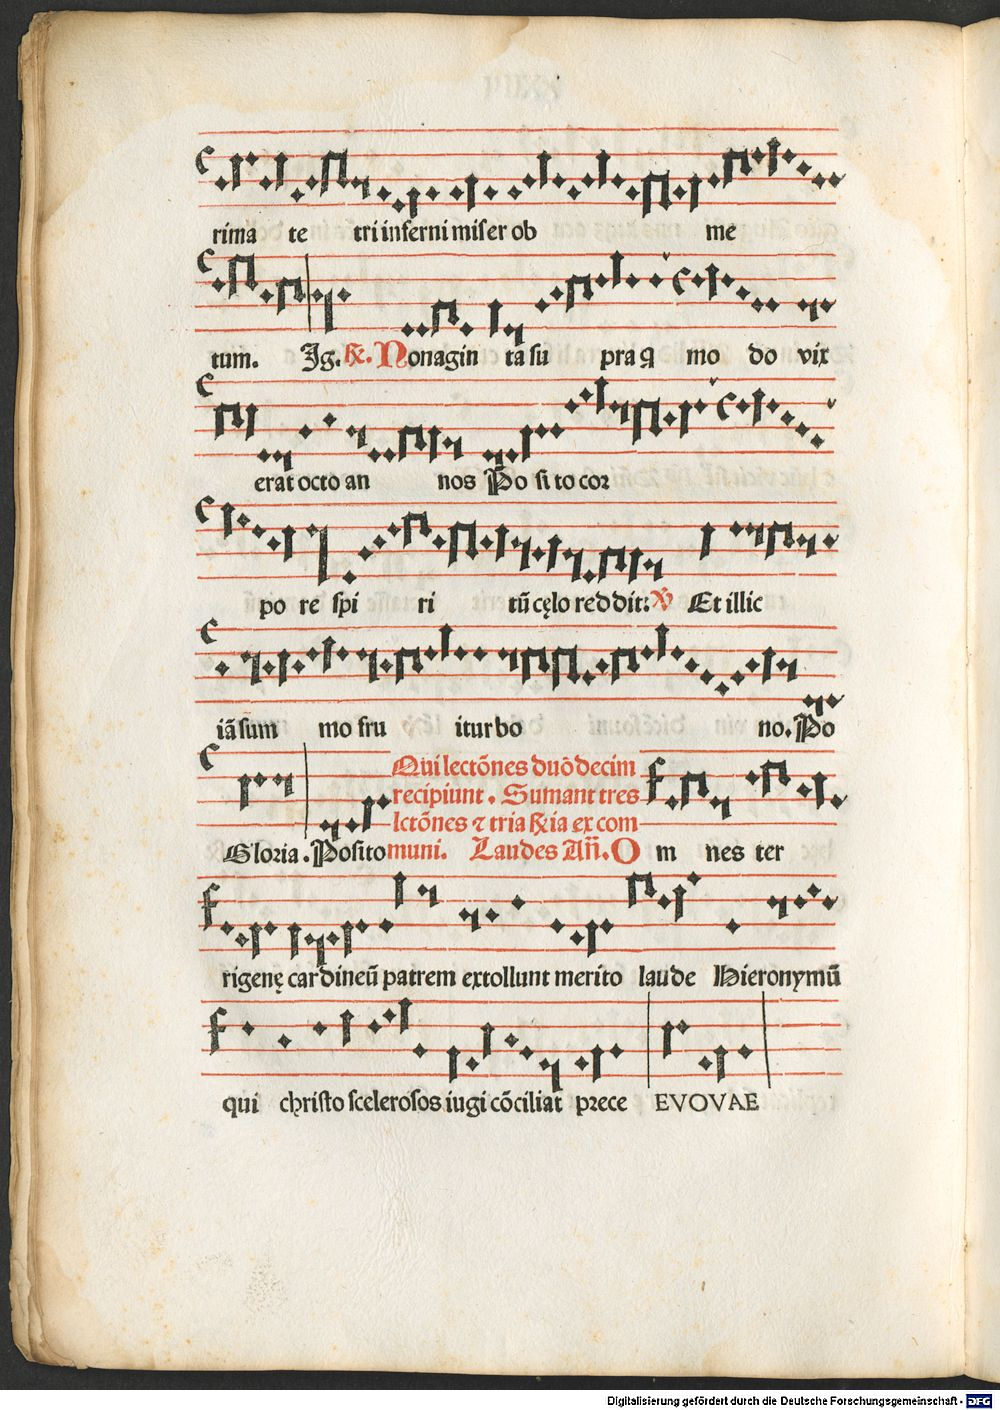 rima te tri inferni miser ob me
tum. Ig. ℟. Nonagin ta su pra ꝙ mo do vix
erãt octo an nos Põ si to cor
po re spi ri tũ cęlo red dit: ℣ Et illic
iã sum mo fru itur bo no. Põ
Qui lectõnes duõdecim
recipiunt. Sumant tres
lctõnes ⁊ tria ℟ia ex com
Gloria. Posito muni. Laudes Añ. O m nes ter
rigenę cardineũ patrem extollunt merito laude Hieronymũ
qui christo scelerosos iugi cõciliat prece EVOVAE
Digitalisierung gefördert durch die Deutsche Forschungsgemeinschaft - DFG